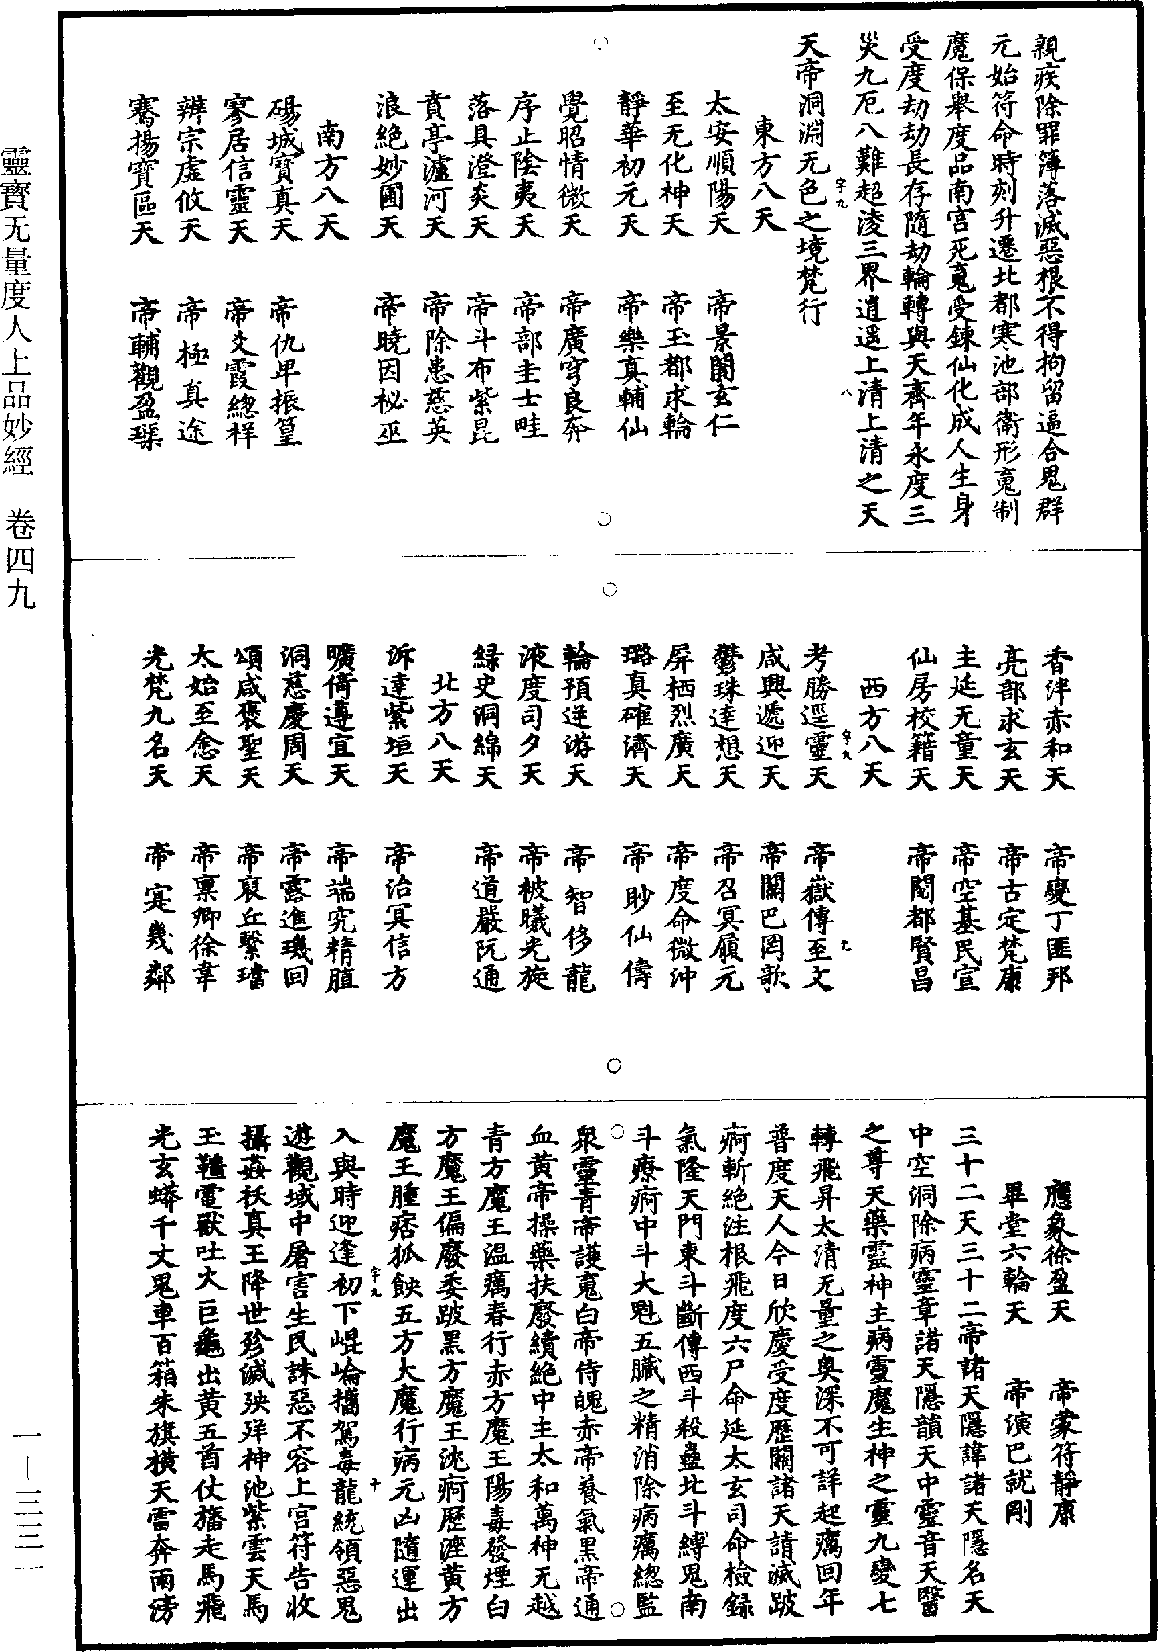 親疾除罪簿落滅惡根不得拘留逼合鬼群
元始符命時刻升遷北都寒池部衛形䰟制
魔保舉度品南宮死䰟受鍊仙化成人生身
受度劫劫長存隨劫輪轉與天齊年永度三
災九厄八難超淩三界逍遥上清上清之天
天帝洞淵无色之境梵行
東方八天
太安順陽天 帝景闇玄仁
至无化神天 帝玉都求輪
靜華初元天 帝樂真輔仙
覺昭情微天 帝廣穹良奔
序止陰夷天 帝部圭士畦
落具澄炎天 帝斗布紫昆
賁亭瀘河天 帝除患慈英
浪絶妙圃天 帝曉因祕巫
南方八天
碭城寶真天 帝仇卑振篁
寥居信靈天 帝爻霞總祥
辨宗虛攸天 帝極真途
騫揚寶區天 帝輔觀盈琛
香泮赤和天 帝變丁匪邦
亮部求玄天 帝古定梵康
主延无童天 帝空基民宣
仙房校籍天 帝閻都賢昌
西方八天
考勝逕靈天 帝嶽傳至文
咸興遞迎天 帝關巴罔歌
鬱珠達想天 帝召冥履元
屏栖烈廣天 帝度命微沖
璐真確濟天 帝眇仙儔
輪預逆游天 帝智修龍
液度司夕天 帝被曦光旋
緑史洞綿天 帝道嚴阮通
北方八天
泝達紫垣天 帝治冥信方
曠脩遵宜天 帝端究精脜
洞慈慶周天 帝露進璣回
頌咸褒聖天 帝裒丘繫璿
太始至悆天 帝稟卿徐韋
光梵九名天 帝寔幾鄰
應象徐盈天 帝蒙符靜康
畢堂六輪天 帝演巴就剛
三十二天三十二帝諸天隱諱諸天隱名天
中空洞除病靈章諸天隱韻天中靈音天醫
之尊天藥靈神主病靈魔生神之靈九變七
轉飛昇太清无量之奥深不可詳起癘回年
普度天人今日欣慶受度歷關諸天請滅跛
痾斬絶注根飛度六尸命延太玄司命檢録
氣隆天門東斗斷傳西斗殺蠱北斗縛鬼南
斗療痾中斗大魁五臟之精消除病癘總監
衆靈青帝護䰟白帝侍魄赤帝養氣黑帝通
血黄帝操藥扶廢續絶中主太和萬神无越
青方魔王温癘春行赤方魔王陽毒發煙白
方魔王偏廢委跛黑方魔王沈痾歷溼黄方
魔王腫痞狐䤵五方大魔行病元凶隨運出
入與時迎逢初下崐崘攜駕毒龍統領惡鬼
遊觀域中屠害生民誅惡不容上宫符告收
攝姦袄真王降世殄滅殃殍神池紫雲天馬
玉轤電獸吐火巨龜出黄五首仗旛走馬飛
光玄蟒千丈鬼車百箱朱旗横天雷奔雨滂
靈寶无量度人上品妙經 卷四九
一—三三一